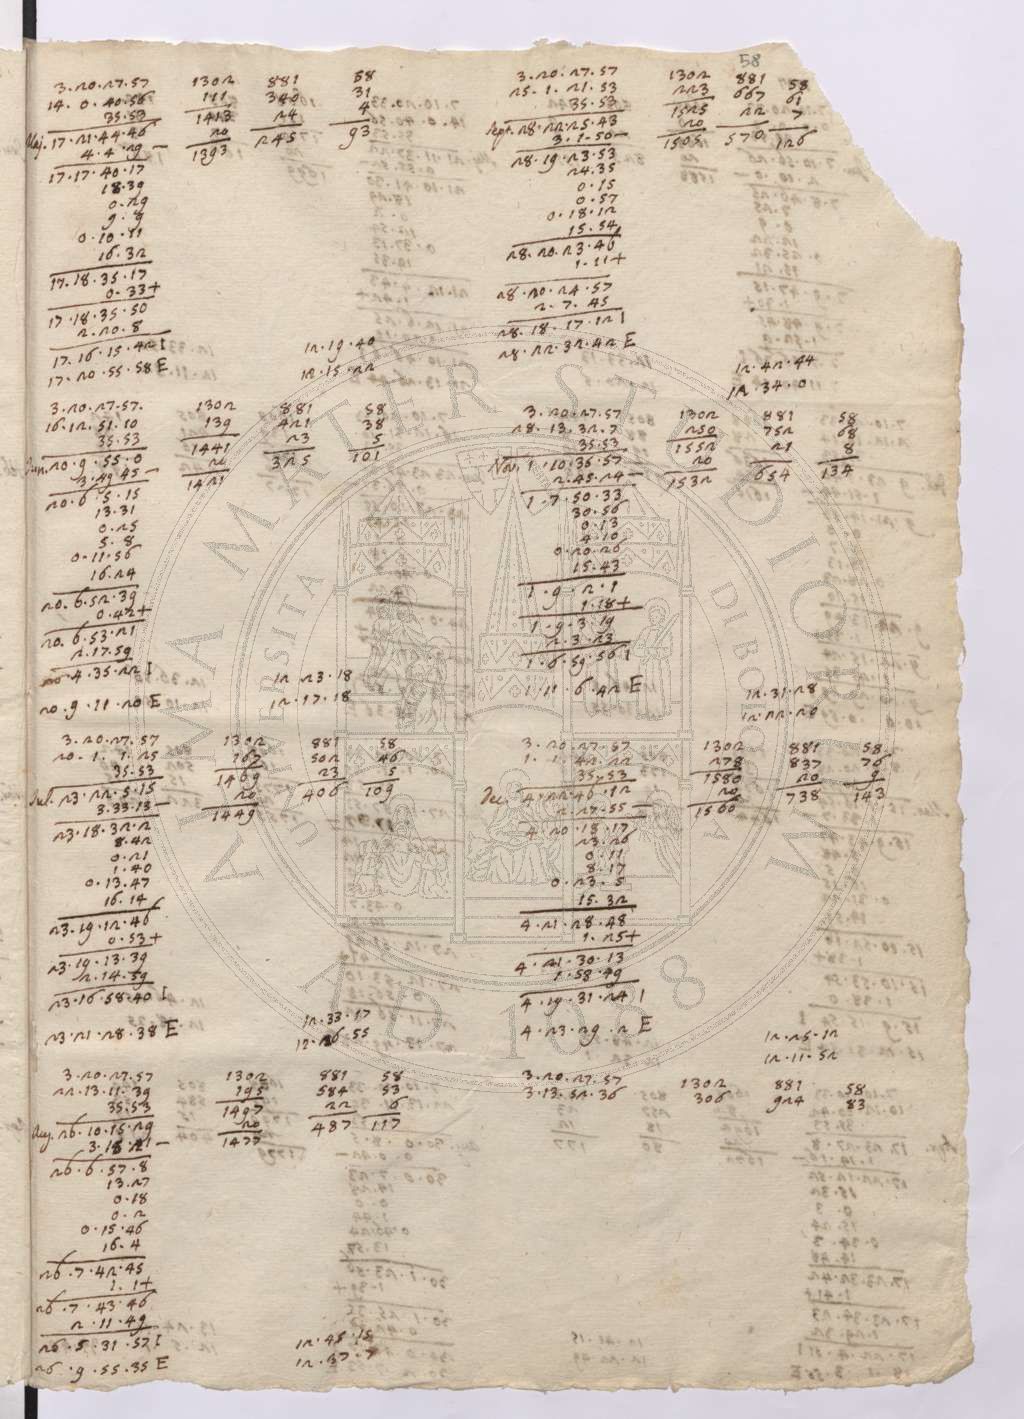 58
3.20.27.57 1302 881 58
14.0.40.56 111 340 31
35.53 1413 24 4
Maj. 17.21.44.46 20 245 93
4.4.29 — 1393
17.17.40.17
18.39
0.29
9.8
0.10.11
16.32
17.18.35.17
0.33+
17.18.35.50
2.20.8
17.16.15.42 I 12.19.40
17.20.55.58 E 12.15.22
3.20.27.57. 1302 881 58
16.12.51.10 139 421 38
35.53 1441 23 5
Jun. 20.9.55.0 20 325 101
3.49.45 — 1421
20.6.5.15
13.31
0.25
5.8
0.11.56
16.24
20.6.52.39
0.42+
20.6.53.21
2.17.59
20.4.35.22 I 12.23.18
20.9.11.20 E 12.17.18
3.20.27.57 1302 881 58
20.1.1.25 167 502 46
35.53 1469 23 5
Jul. 23.22.5.15 20 406 109
3.33.13 — 1449
23.18.32.2
8.42
0.21
1.40
0.13.47
16.14
23.19.12.46
0.53+
23.19.13.39
2.14.59
23.16.58.40 I 12.33.17
23.21.28.38 E 12.26.55
3.20.27.57 1302 881 58
22.13.11.39 195 584 53
35.53 1497 22 6
Aug. 26.10.15.29 20 487 117
3.18.21 — 1477
26.6.57.8
13.27
0.18
0.2
0.15.46
16.4
26.7.42.45
1.1+
26.7.43.46
2.11.49
26.5.31.57 I 12.45.15
26.9.55.35 E 12.37.7
3.20.27.57 1302 881 58
25.1.21.53 223 667 61
35.53 1525 22 7
Sept. 28.22.25.43 20 570 126
3.1.50 — 1505
28.19.23.53
24.35
0.15
0.57
0.18.12
15.54
28.20.23.46
1.11+
28.20.24.57
2.7.45
28.18.17.12 I
28.22.32.42 E 12.42.44
12.34.0
3.20.27.57 1302 881 58
28.13.32.7 250 752 68
35.53 1552 21 8
Nov. 1.10.35.57 20 654 134
2.45.24 — 1532
1.7.50.33
30.56
0.13
4.10
0.20.26
15.43
1.9.2.1
1.18+
1.9.3.19
2.3.23
1.6.59.56 I
1.11.6.42 E 12.31.28
12.22.20
3.20.27.57 1302 881 58
1.1.42.22 278 837 76
35.53 1580 20 9
Dec. 4.22.46.12 20 738 143
2.27.55 — 1560
4.20.18.17
23.26
0.11
8.17
0.23.5
15.32
4.21.28.48
1.25+
4.21.30.13
1.58.49
4.19.31.24 I
4.23.29.2 E 12.25.12
12.11.52
3.20.27.57 1302 881 58
3.13.52.36 306 924 83
ALMA MATER STUDIORUM
UNIVERSITÀ DI BOLOGNA
AD 1088